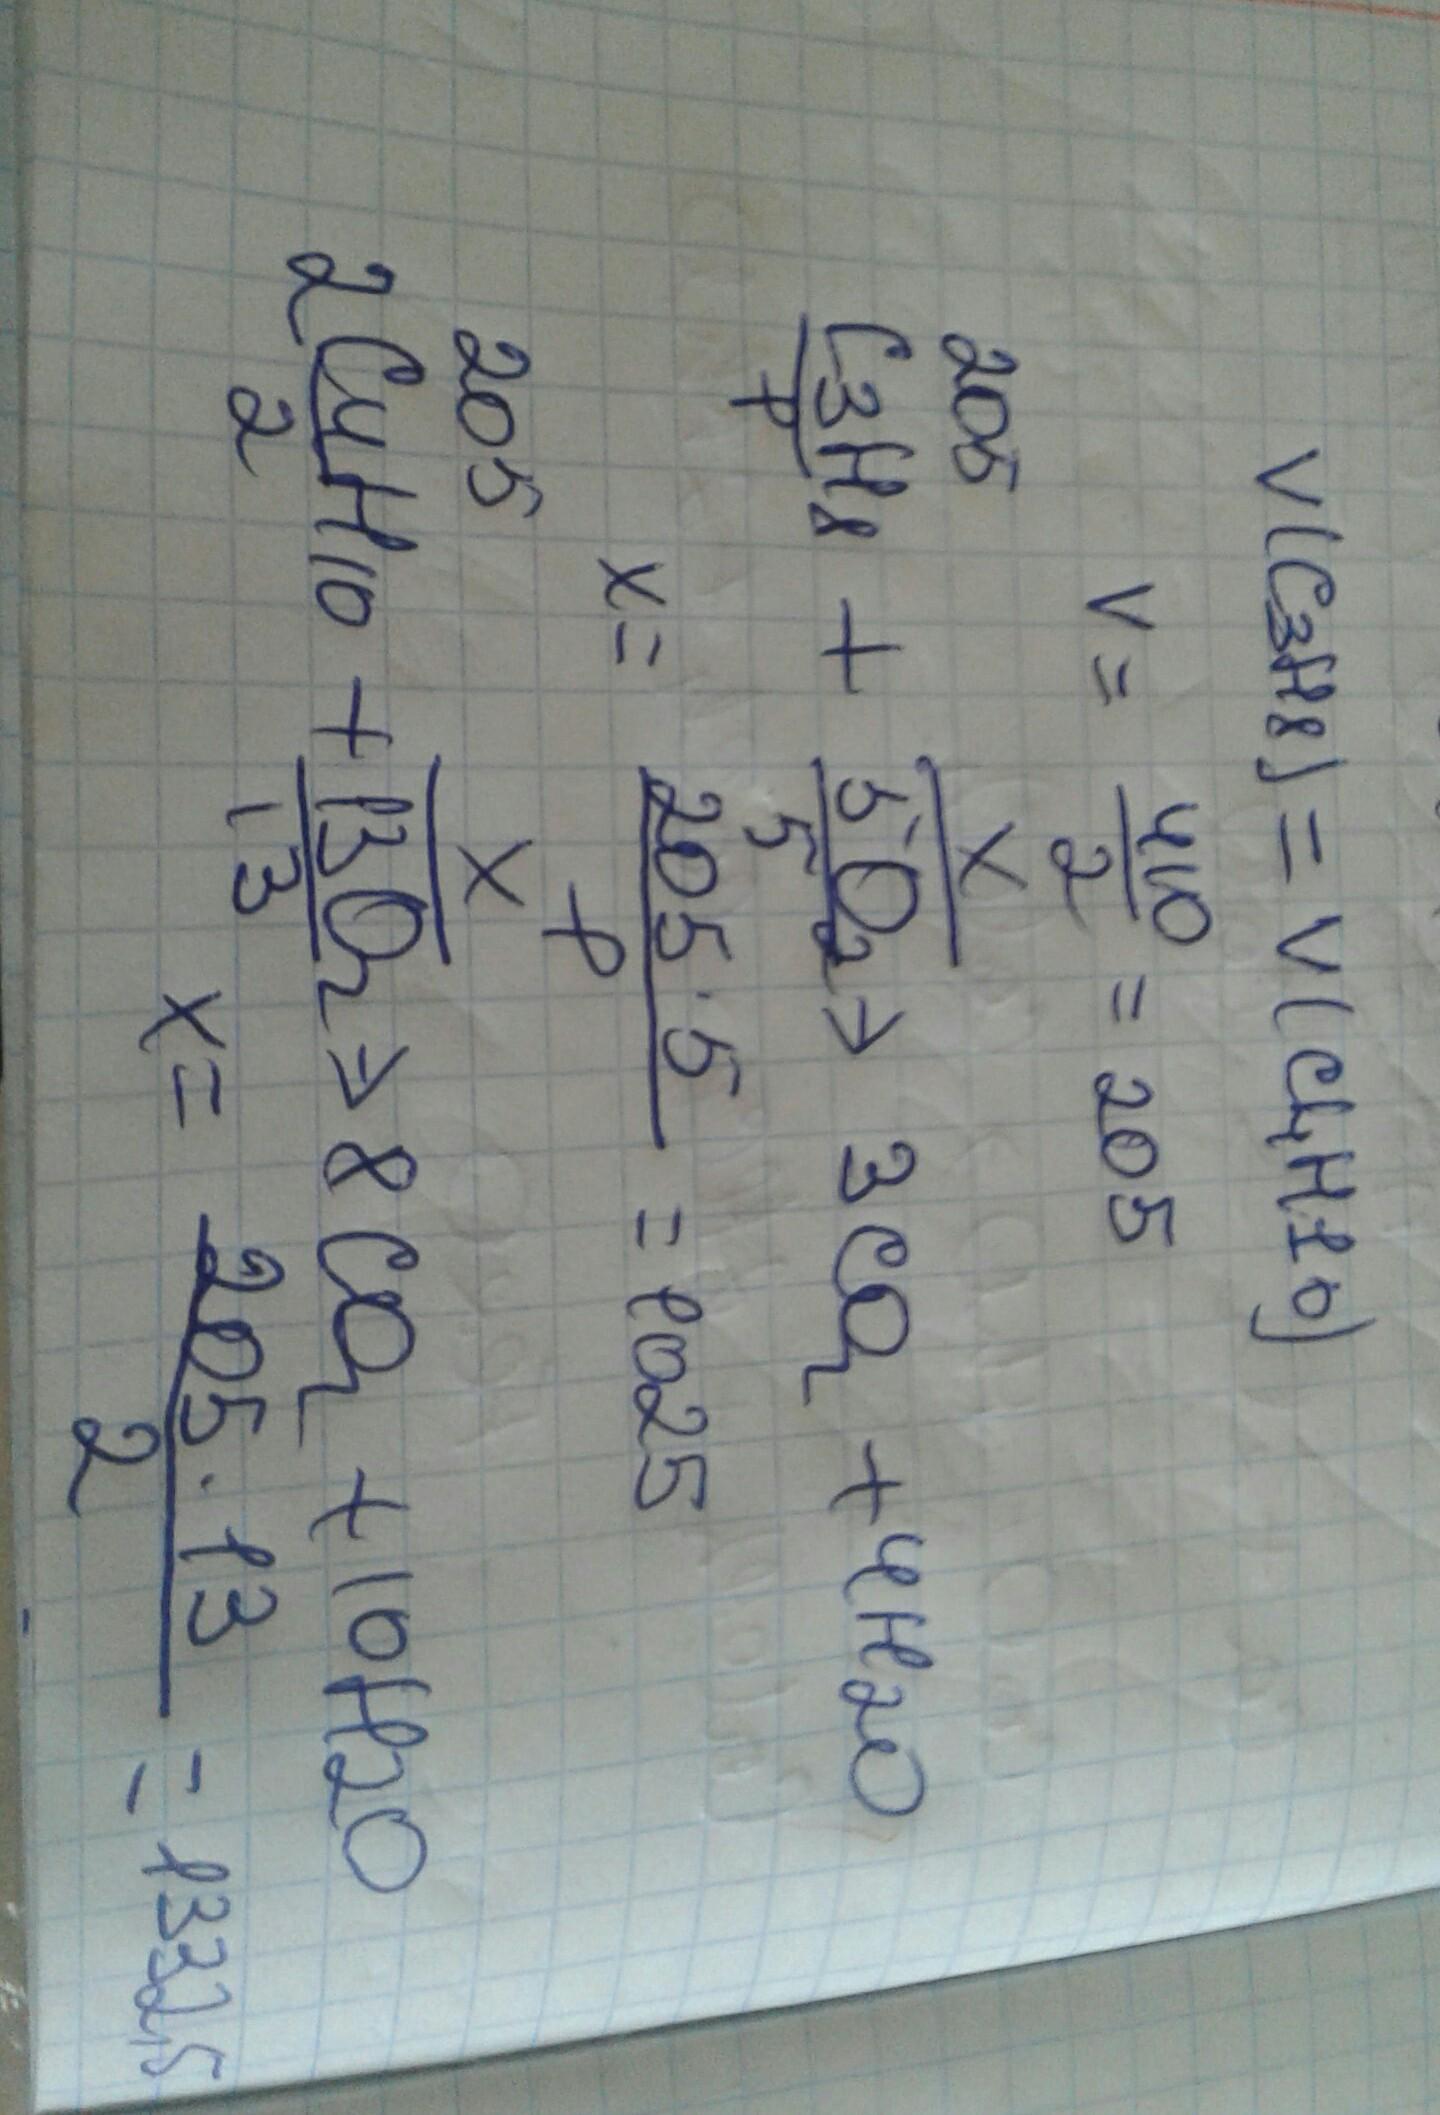 V(C3H8) = V(C4H10)
V = 410/2 = 205
205 x
C3H8 + 5O2 → 3CO2 + 4H2O
1 5
x = 205·5/1 = 1025
205 x
2C4H10 + 13O2 → 8CO2 + 10H2O
2 13
x = 205·13/2 = 1332,5